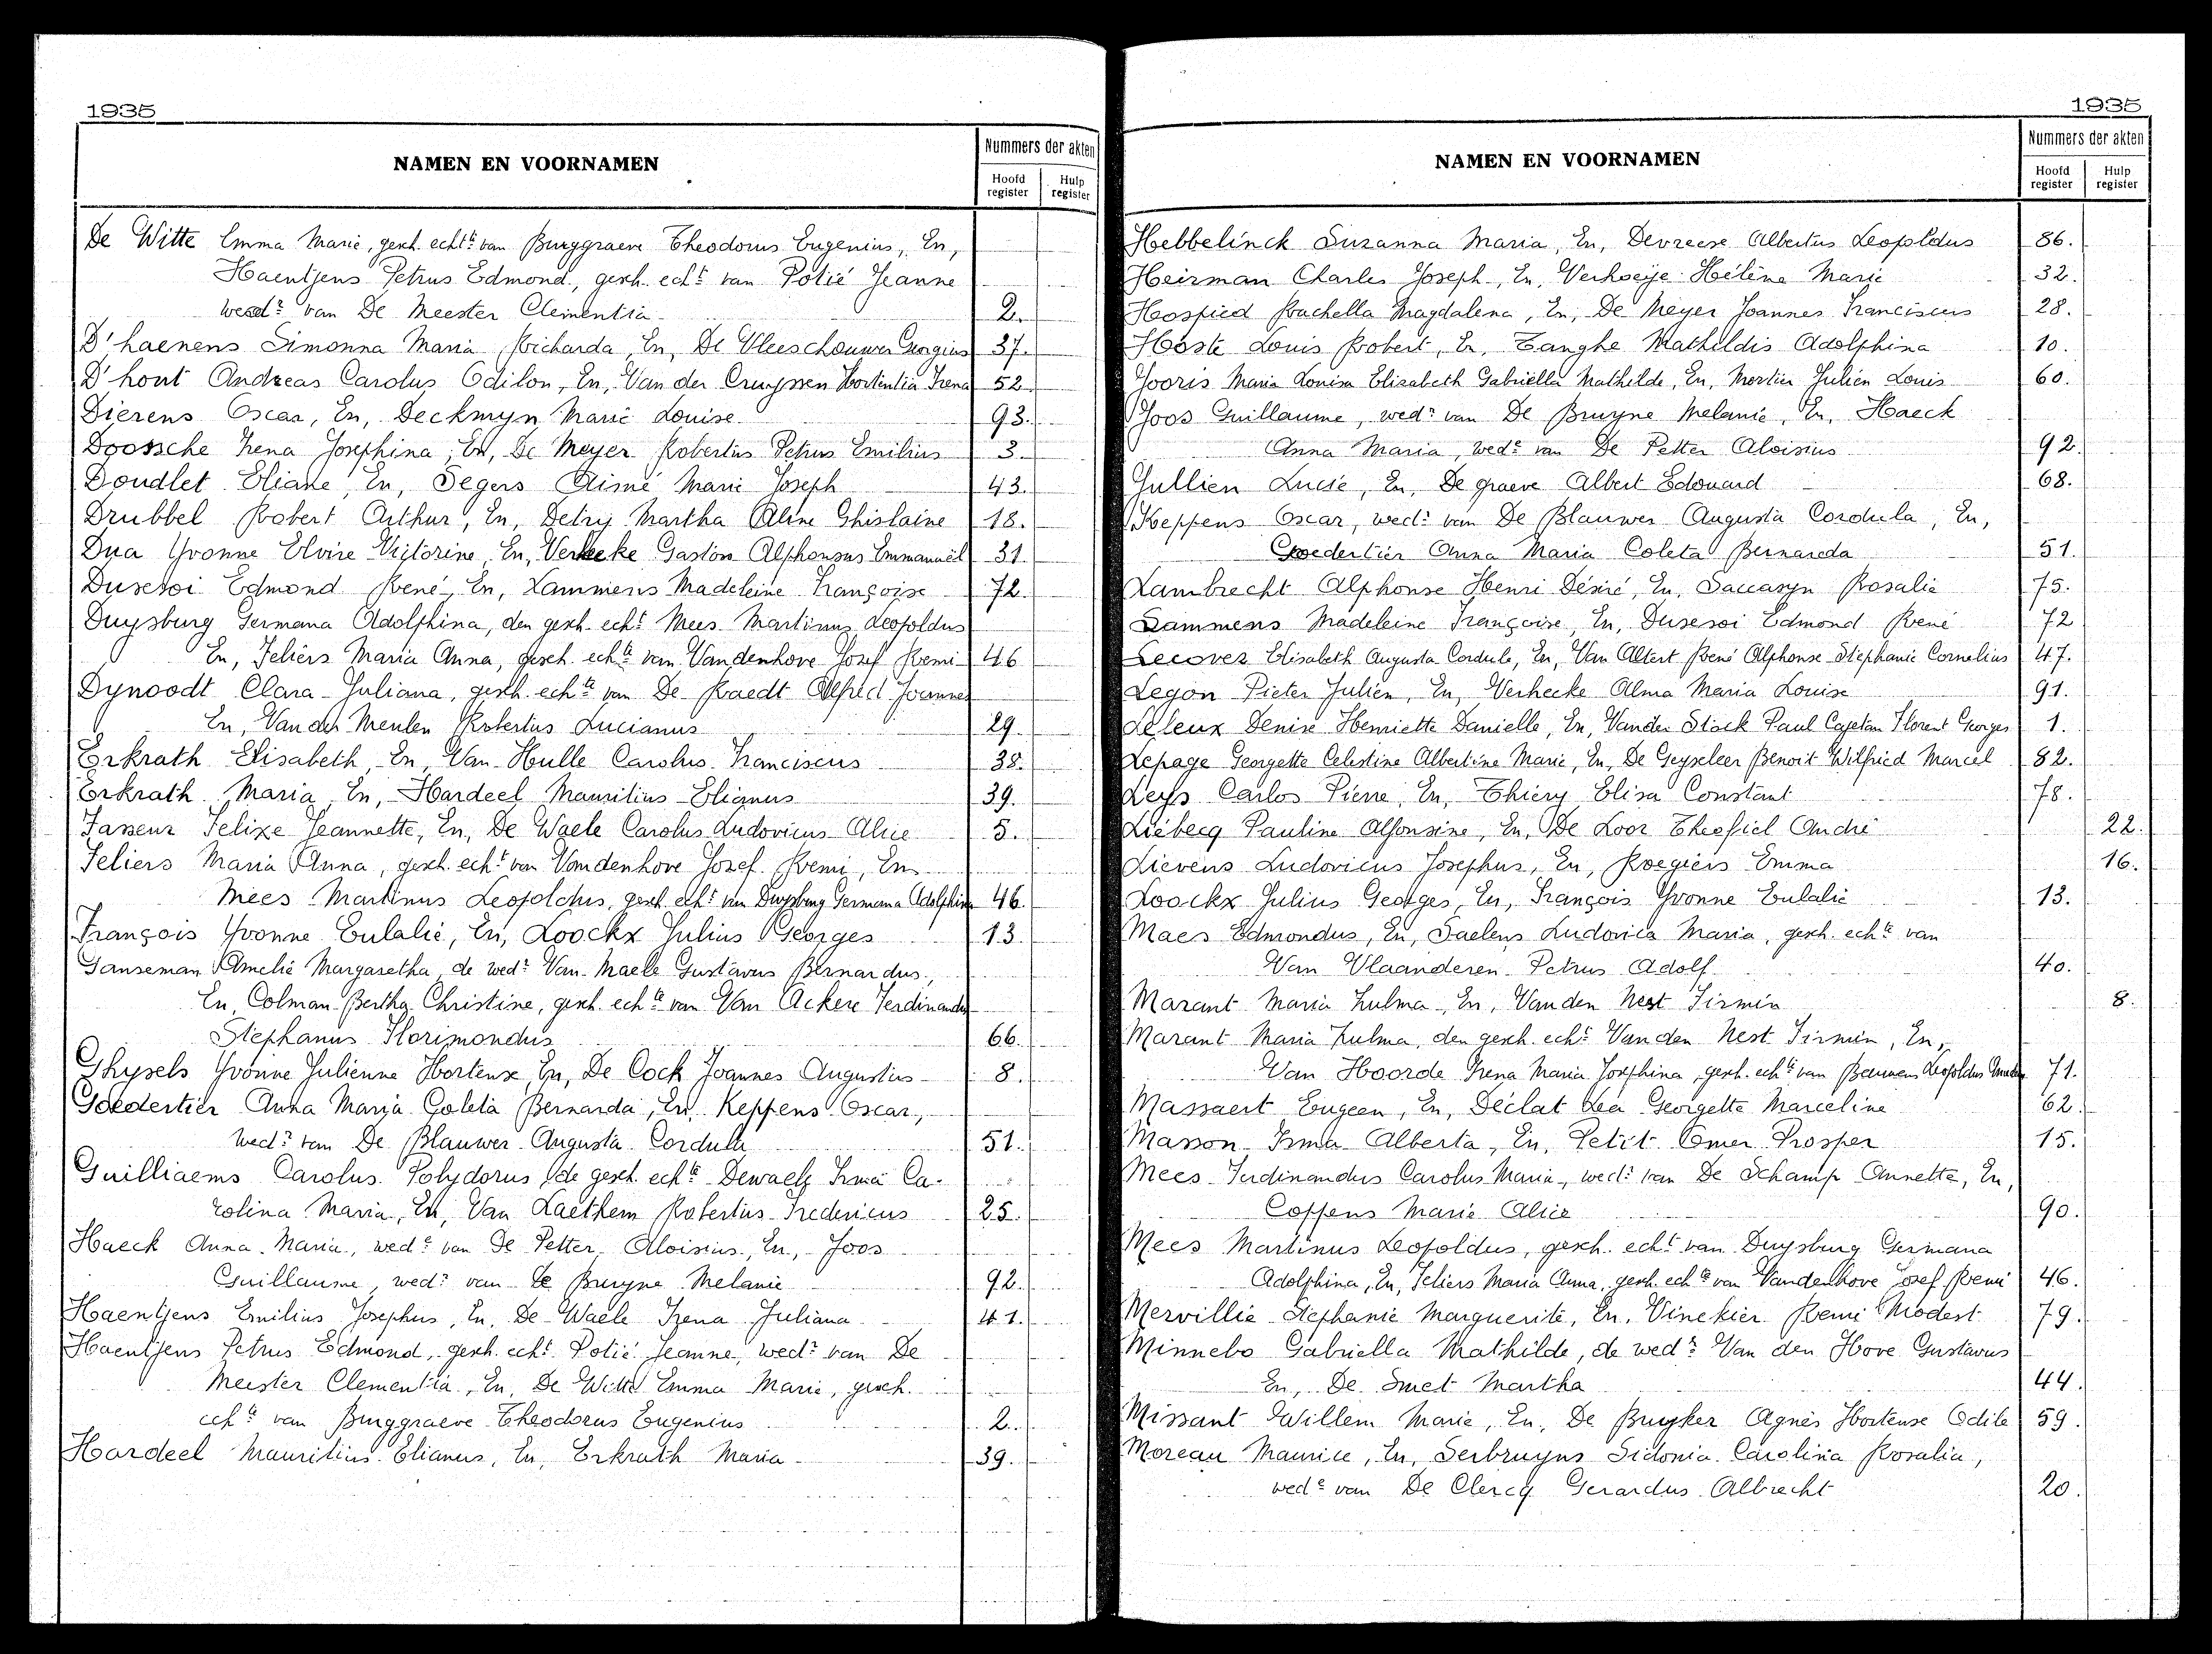 1935
NAMEN EN VOORNAMEN
Nummers der akten
Hoofd register
Hulp register
De Witte Emma Marie, gesch. echte van Burggraeve Theodorus Eugenius, En,
Haentjens Petrus Edmond, gesch. echt van Potié Jeanne
wedr van De Meester Clementia 2.
D'haenens Simonna Maria Richarda, En, De Vleeschouwer Georgius 37.
D'hont Andreas Carolus Odilon, En, Van der Cruyssen Hortentia Irena 52.
Dierens Oscar, En, Deckmyn Marie Louise 93.
Doossche Irena Josephina, En, De Meyer Robertus Petrus Emilius 3.
Doudlet Eliane, En, Segers Aimé Marie Joseph 43.
Drubbel Robert Arthur, En, Detry Martha Aline Ghislaine 18.
Dua Yvonne Elvire Victorine, En, Verbeke Gaston Alphonsus Emmanuël 31.
Dusesoi Edmond René, En, Lammens Madeleine Françoise 72.
Duysburg Germana Adolphina, den gesch. echt Mees Martinus Leopoldus
En, Feliers Maria Anna, gesch. echte van Vandenhove Jozef Remi 46
Dynoodt Clara Juliana, gesch. echte van De Raedt Alfred Joannes
En, Van der Meulen Robertus Lucianus 29.
Erkrath Elisabeth, En, Van Hulle Carolus Franciscus 38.
Erkrath Maria, En, Hardeel Mauritius Elianus 39.
Fasseur Felixe Jeannette, En, De Waele Carolus Ludovicus Alice 5.
Feliers Maria Anna, gesch. echt van Vandenhove Jozef Remi, En
Mees Martinus Leopoldus, gesch. echt van Duysburg Germana Adolphina 46.
François Yvonne Eulalie, En, Loockx Julius Georges 13
Ganseman Amelie Margaretha, de wedr Van Maele Gustavus Bernardus,
En, Colman Bertha Christine, gesch. echte van Van Ackere Ferdinandus
Stephanus Florimondus 66.
Ghysels Yvonne Julienne Hortense, En, De Cock Joannes Augustus 8.
Goedertier Anna Maria Coleta Bernarda, En, Keppens Oscar,
wedr van De Blauwer Augusta Cordula 51.
Guilliaems Carolus Polydorus, de gesch. echte Dewaele Irma Ca-
rolina Maria, En, Van Laethem Robertus Fredericus 25.
Haeck Anna Maria, wede van De Petter Aloisius, En, Joos
Guillaume, wedr van De Bruyne Melanie 92.
Haentjens Emilius Josephus, En, De Waele Irena Juliana 41.
Haentjens Petrus Edmond, gesch. echt Potié Jeanne, wedr van De
Meester Clementia, En, De Witte Emma Marie, gesch.
echte van Burggraeve Theodorus Eugenius 2.
Hardeel Mauritius Elianus, En, Erkrath Maria 39.
1935
NAMEN EN VOORNAMEN
Nummers der akten
Hoofd register
Hulp register
Hebbelinck Suzanna Maria, En, Devreese Albertus Leopoldus 86.
Heirman Charles Joseph, En, Verhoeije Hélène Marie 32.
Hospied Rachella Magdalena, En, De Meyer Joannes Franciscus 28.
Hoste Louis Robert, En, Tanghe Mathildis Adolphina 10.
Jooris Maria Louisa Elisabeth Gabriella Mathilde, En, Mertier Julien Louis 60.
Joos Guillaume, wedr van De Bruyne Melanie, En, Haeck
Anna Maria, wede van De Petter Aloisius 92.
Jullien Lucie, En, De graeve Albert Edouard 68.
Keppens Oscar, wedr van De Blauwer Augusta Cordula, En,
Goedertier Anna Maria Coleta Bernarda 51.
Lambrecht Alphonse Henri Désiré, En, Saccasyn Rosalie 75.
Lammens Madeleine Françoise, En, Dusesoi Edmond René 72
Lecover Elisabeth Augusta Cordule, En, Van Altert René Alphonse Stephanie Cornelius 47.
Legon Pieter Julien, En, Verhecke Alma Maria Louise 91.
Leleux Denise Henriette Danielle, En, Vander Stock Paul Cajetan Florent Georges 1.
Lepage Georgette Celestine Albertine Marie, En, De Geyseleer Benoit Wilfried Marcel 82.
Leys Carlos Pierre, En, Thiéry Elisa Constant 78.
Liébecq Pauline Alfonsine, En, De Loor Theofiel André 22.
Lievens Ludovicus Josephus, En, Roegiers Emma 16.
Loockx Julius Georges, En, François Yvonne Eulalie 13.
Maes Edmondus, En, Saelens Ludovica Maria, gesch. echte van
Van Vlaanderen Petrus Adolf 40.
Marant Maria Zulma, En, Van den Nest Firmin 8.
Marant Maria Zulma, den gesch. echt Van den Nest Firmin, En,
Van Hoorde Irena Maria Josephina, gesch. echte van Leopoldus 71.
Massaert Eugeen, En, Déclat Lea Georgette Marceline 62.
Masson Irma Alberta, En, Petit Omer Prosper 15.
Mees Ferdinandus Carolus Maria, wedr van De Schamp Annette, En,
Coppens Marie Alice 90.
Mees Martinus Leopoldus, gesch. echt van Duysburg Germana
Adolphina, En, Feliers Maria Anna, gesch. echte van Vandenhove Josef Remi 46.
Mervillie Stephanie Marguerite, En, Vinckier Remi Modest 79.
Minnebo Gabriella Mathilde, de wedr Van den Hove Gustavus
En, De Smet Martha 44.
Missant Willem Marie, En, De Buyker Agnès Hortense Odile 59.
Moreau Maurice, En, Serbruyns Sidonia Carolina Rosalia,
wede van De Clercq Gerardus Albrecht 20.